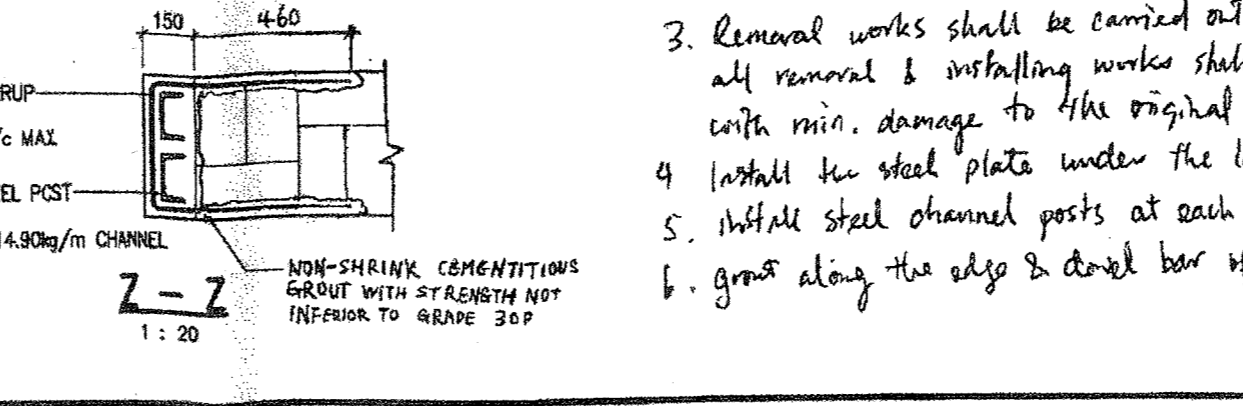 150
460
RUP
/c MAX
EL POST
14.90kg/m CHANNEL
NON-SHRINK CEMENTITIOUS
GROUT WITH STRENGTH NOT
INFERIOR TO GRADE 30P
Z - Z
1 : 20
3. Removal works shall be carried out
all removal & installing works shal
with min. damage to the original
4 Install the steel plate under the
5. install steel channel posts at each
6. grout along the edge & dowel bar